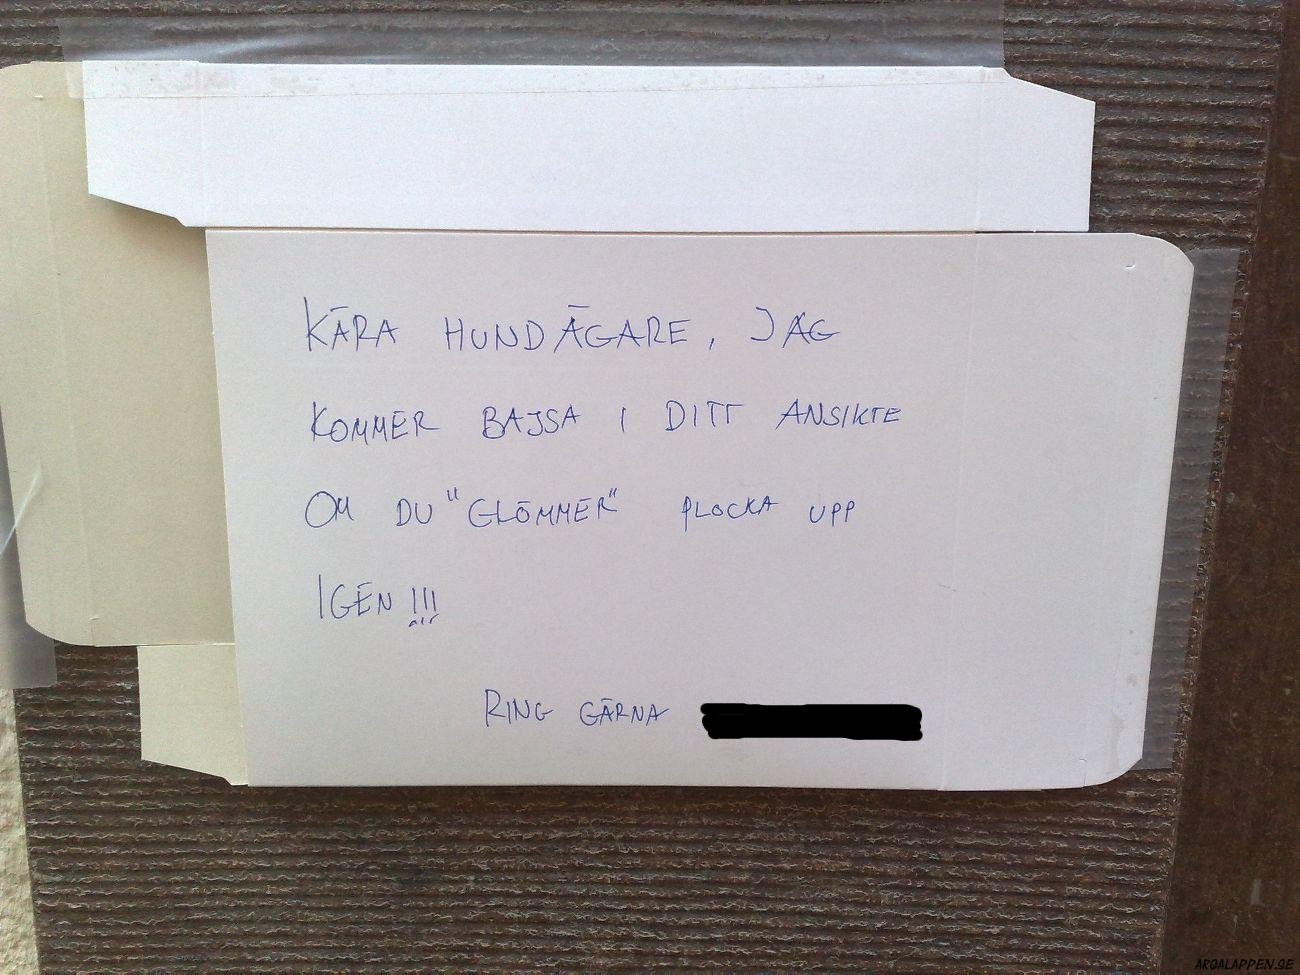 KÄRA HUNDÄGARE, JAG
KOMMER BAJSA I DITT ANSIKTE
OM DU "GLÖMMER" PLOCKA UPP
IGEN!!!
RING GÄRNA
ARGALAPPEN.SE